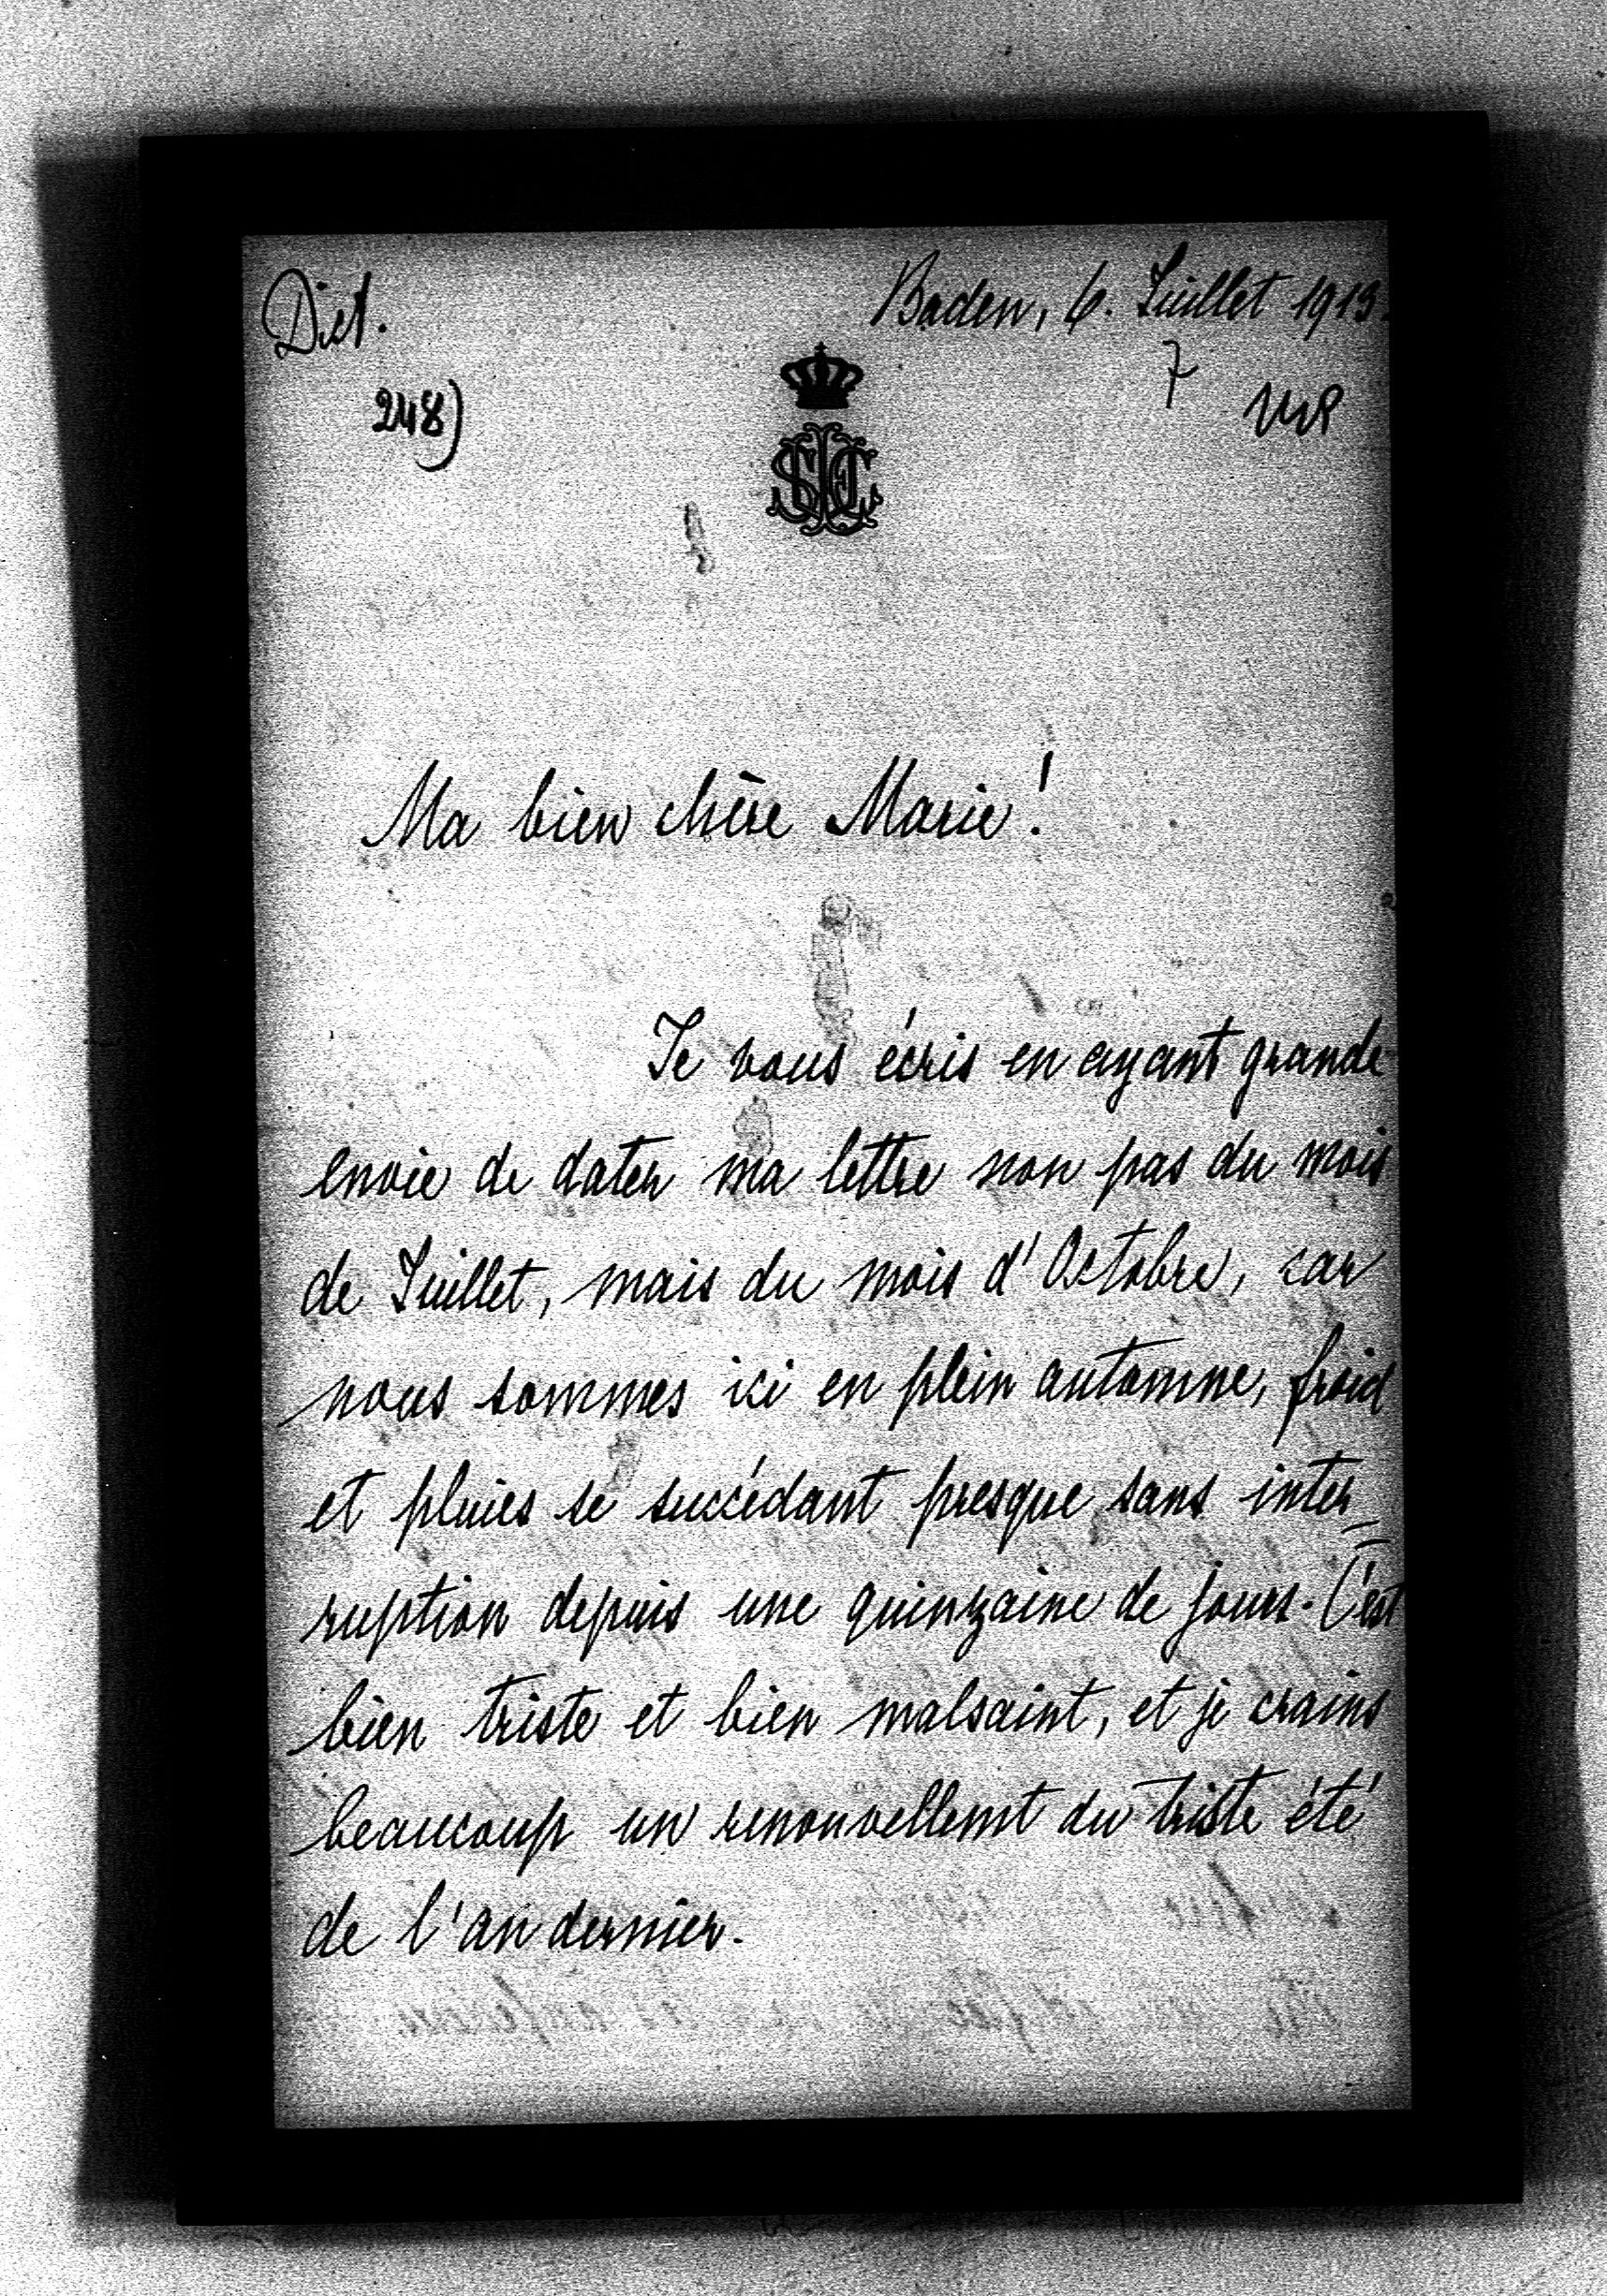 Dict. Baden, 6. Juillet 1913.
7
248)
Ma bien chère Marie!
Je vous écris en ayant grande
envie de dater ma lettre non pas du mois
de Juillet, mais du mois d'Octobre, car
nous sommes ici en plein automne, froid
et pluies se succédant presque sans inter=
ruption depuis une quinzaine de jours. C'est
bien triste et bien malsaint, et je crains
beaucoup un renouvellemt du triste été
de l'an dernier.